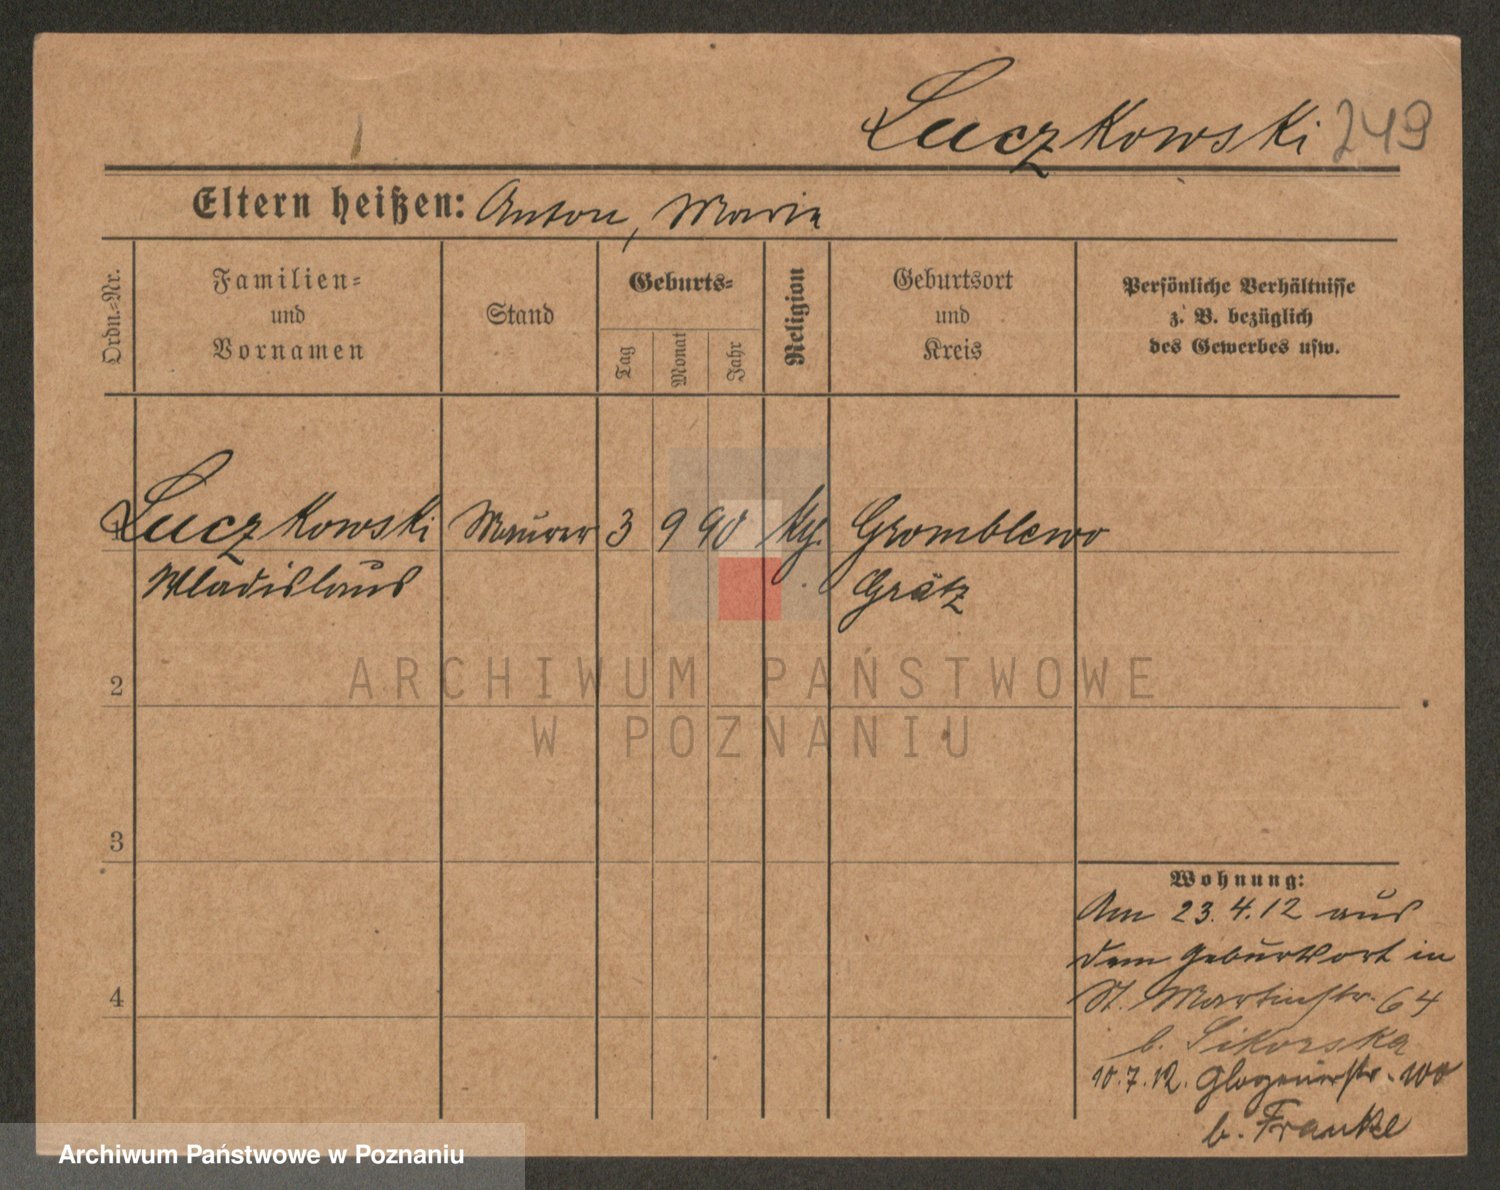 Luczkowski 249
Eltern heißen: Anton, Maria
Ordn.-Nr.
Familien-
und
Vornamen
Stand
Geburts-
Tag
Monat
Jahr
Religion
Geburtsort
und
Kreis
Persönliche Verhältnisse
z. B. bezüglich
des Gewerbes usw.
1 Luczkowski Maurer 3 9 90 kg. Gromblewo
Wladislaus Grätz
ARCHIWUM PAŃSTWOWE
W POZNANIU
2
3
4
Wohnung:
Am 23.4.12 aus
dem Geburtsort in
St. Martinstr. 64
b. Sikorska
10.7.12. Glogauerstr. 100
b. Franke
Archiwum Państwowe w Poznaniu